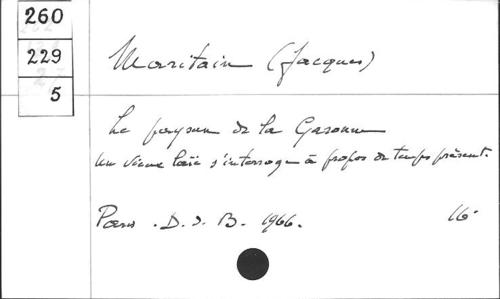 260
229
5
Maritain (Jacques)
Le paysan de la Garonne
Un vieux laïc s'interroge à propos du temps présent.
Paris. D. d. B. 1966. 16°